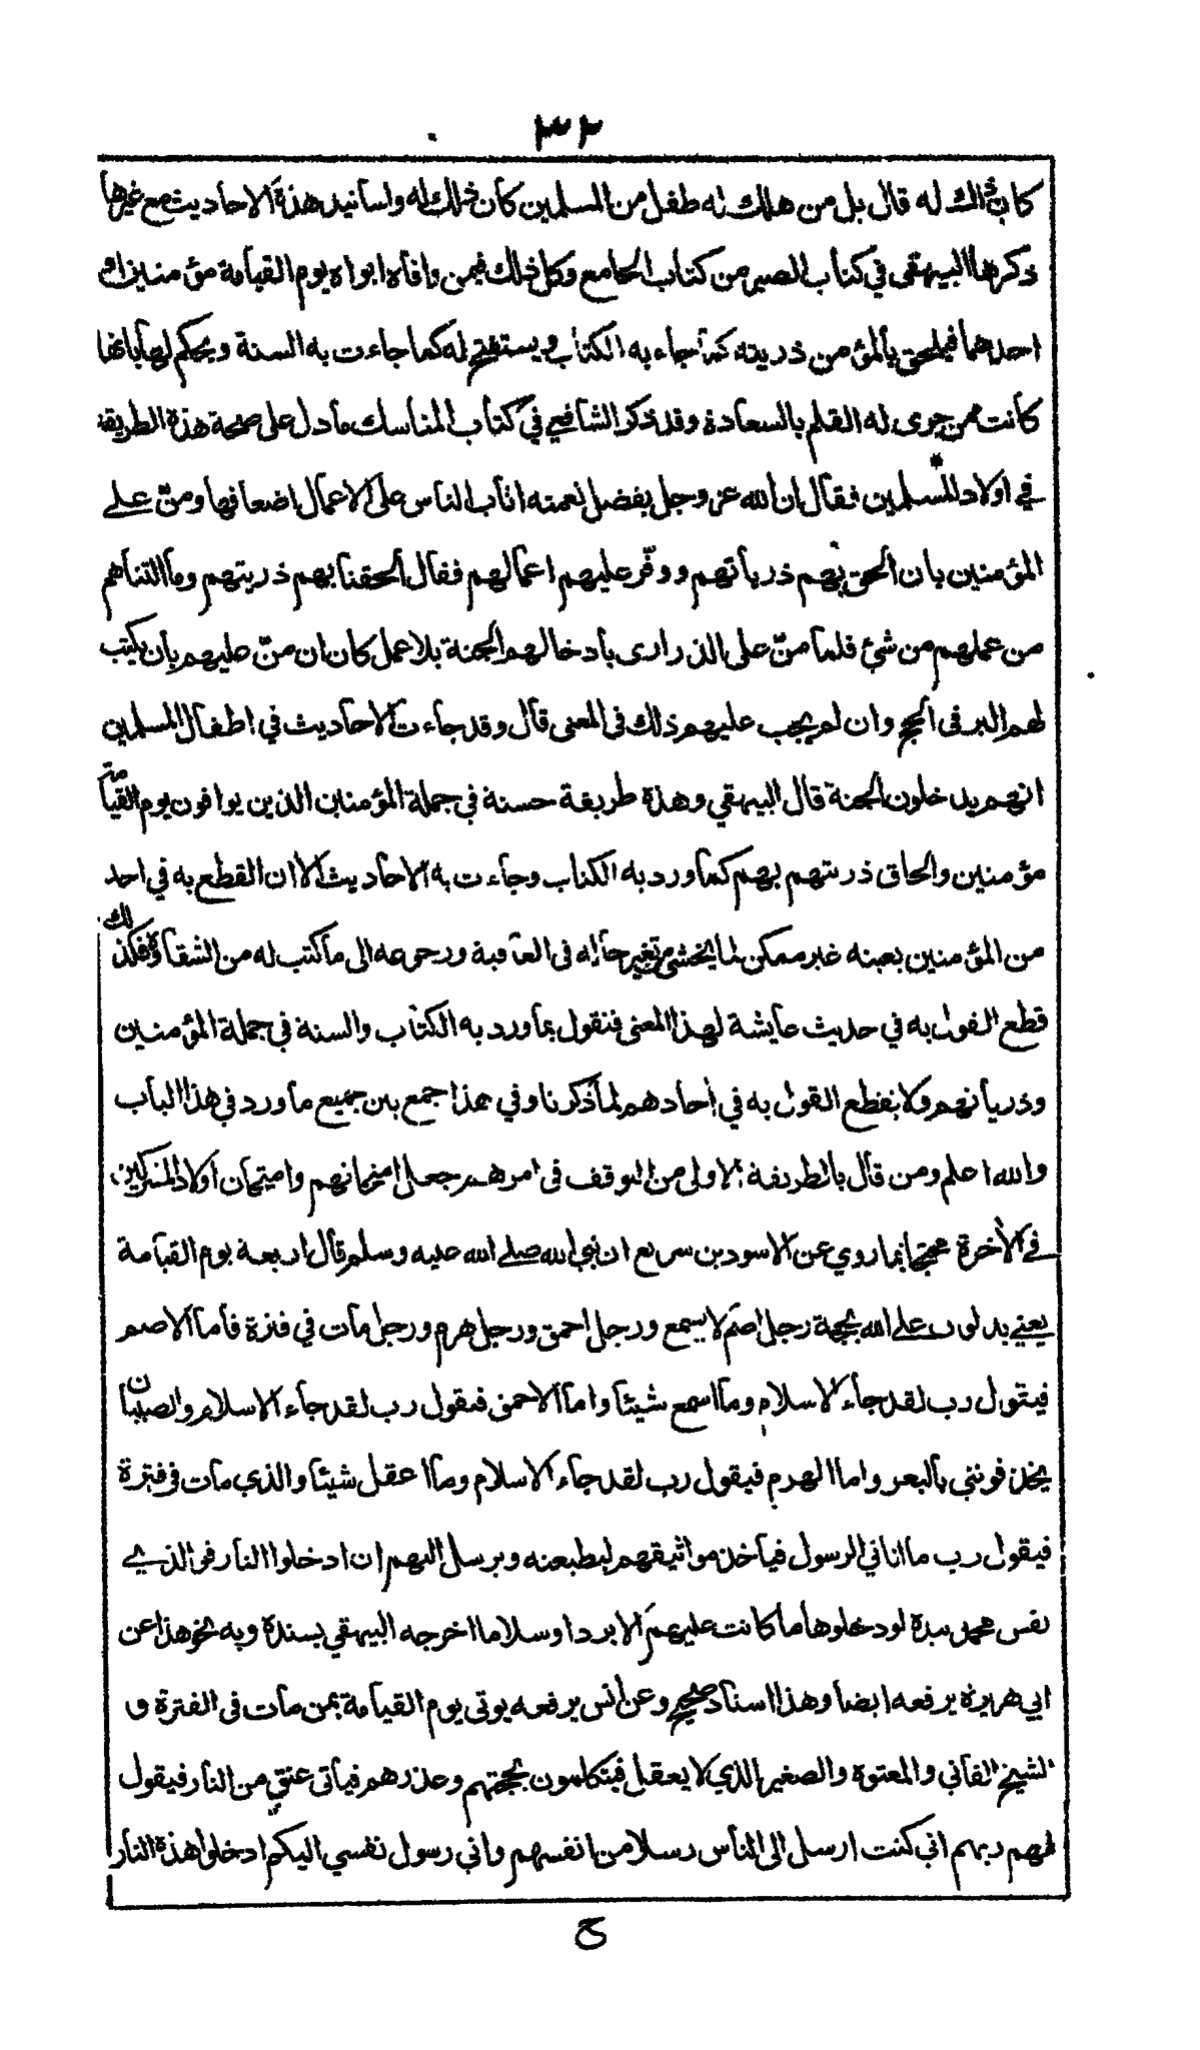 ٣٢
كان ذلك له قال بل من هلك له طفل من المسلمين كان ذلك له واسانيد هذة الاحاديث مع غيرها
ذكرها البيهقى في كتاب الصبر من كتاب الجامع وكل ذلك فيمن وافاه ابواه يوم القيامة مؤمنين او
احدهما فيلحق بالمؤمن ذريته كما جاء به الكتاب ويستفتح له كما جاءت به السنة ويحكم لها بانها
كانت ممن جرى له القلم بالسعادة وقد ذكر الشافعي في كتاب المناسك مادل على صحة هذة الطريقة
في اولاد المسلمين فقال ان الله عز وجل بفضل نعمته اثاب الناس على الاعمال اضعافها ومنّ على
المؤمنين بان الحق بهم ذرياتهم ووفّر عليهم اعمالهم فقال الحقنا بهم ذريتهم وما التناهم
من عملهم من شئ فلما منّ على الذرارى بادخالهم الجنة بلا عمل كان ان منّ عليهم بان يكتب
لهم البر فى الحج وان لم يجب عليهم ذلك فى المعنى قال وقد جاءت الاحاديث في اطفال المسلمين
انهم يدخلون الجنة قال البيهقي وهذة طريقة حسنة في جملة المؤمنين الذين يوافون يوم القيامة
مؤمنين والحاق ذريتهم بهم كما ورد به الكتاب وجاءت به الاحاديث الا ان القطع به في احد
من المؤمنين بعينه غير ممكن لما يخشى من تغير حاله فى العاقبة ورجوعه الى ما كتب له من الشقاوة فكذلك
قطع القول به في حديث عايشة لهذا المعنى فنقول بما ورد به الكتاب والسنة في جملة المؤمنين
وذرياتهم ولا نقطع القول به في احادهم لما ذكرنا وفي هذا جمع بين جميع ما ورد في هذا الباب
والله اعلم ومن قال بالطريقة الاولى من التوقف فى امرهم جعل امتحانهم وامتحان اولاد المشركين
في الاخرة محتجا بما روي عن الاسود بن سريع ان نبي الله صلى الله عليه وسلم قال اربعة يوم القيامة
يعني يدلون على الله بحجة رجل اصم لا يسمع ورجل احمق ورجل هرم ورجل مات في فترة فاما الاصم
فيقول رب لقد جاء الاسلام وما اسمع شيئا واما الاحمق فيقول رب لقد جاء الاسلام والصبيان
يخذفونني بالبعر واما الهرم فيقول رب لقد جاء الاسلام وما اعقل شيئا والذي مات فى فترة
فيقول رب ما اتاني الرسول فياخذ مواثيقهم ليطيعنه ويرسل اليهم ان ادخلوا النار فو الذي
نفس محمد بيدة لو دخلوها ما كانت عليهم الا بردا وسلاما اخرجه البيهقي بسندة وبه نحو هذا عن
ابي هريرة يرفعه ايضا وهذا اسناد صحيح وعن انس يرفعه يوتى يوم القيامة بمن مات فى الفترة و
الشيخ الفاني والمعتوة والصغير الذي لا يعقل فيتكلمون بحجتهم وعذرهم فياتى عنق من النار فيقول
لهم ربهم اني كنت ارسل الى الناس رسلا من انفسهم واني رسول نفسي اليكم ادخلوا هذة النار
ح